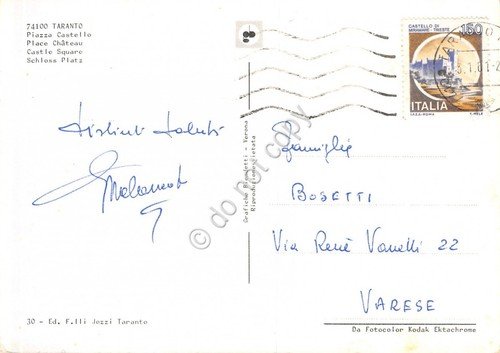 74100 TARANTO
Piazza Castello
Place Château
Castle Square
Schloss Platz
CASTELLO DI
MIRAMARE - TRIESTE
150
ITALIA
I.P.Z.S.-ROMA
Distinti saluti
Famiglia
BOSETTI
Via René Vanelli 22
VARESE
Riproduzione vietata
do not copy
30 - Ed. F.lli Jozzi Taranto
Da Fotocolor Kodak Ektachrome